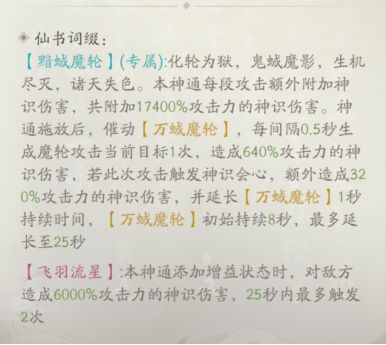 仙书词缀:
【黯蜮魔轮】(专属):化轮为狱，鬼蜮魔影，生机
尽灭，诸天失色。本神通每段攻击额外附加神
识伤害，共附加17400%攻击力的神识伤害。神
通施放后，催动【万蜮魔轮】，每间隔0.5秒生
成魔轮攻击当前目标1次，造成640%攻击力的神
识伤害，若此次攻击触发神识会心，额外造成32
0%攻击力的神识伤害，并延长【万蜮魔轮】1秒
持续时间，【万蜮魔轮】初始持续8秒，最多延
长至25秒
【飞羽流星】:本神通添加增益状态时，对敌方
造成6000%攻击力的神识伤害，25秒内最多触发
2次